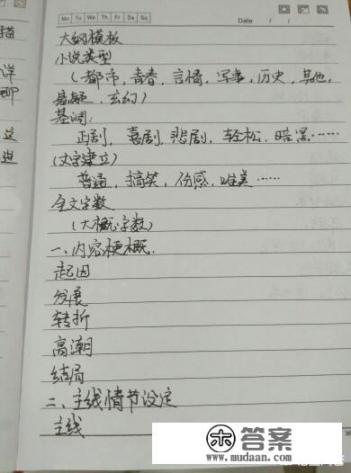 Mo Tu We Th Fr Sa Su
Date / /
大纲模板
小说类型
(都市，青春，言情，军事，历史，其他，
悬疑，玄幻)
基调：
正剧，喜剧，悲剧，轻松，暗黑……
(文字建立)
普通，搞笑，伤感，唯美……
全文字数
(大概字数)
一、内容梗概．
起因
发展
转折
高潮
结局
二、主线情节设定
主线
答案
www.mudaan.com